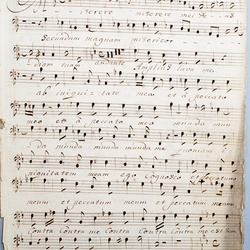 miserere miserere mei Deus
Secundum magnam misericor
diam tuam andante Amplius lava me
ab iniquitate mea et a peccato
meo et a peccato meo munda mun
da munda munda me quoniam
iniquitatem meam ego cognosco et peccatum
meum et peccatum meum et peccatum meum
contra contra me contra contra me est